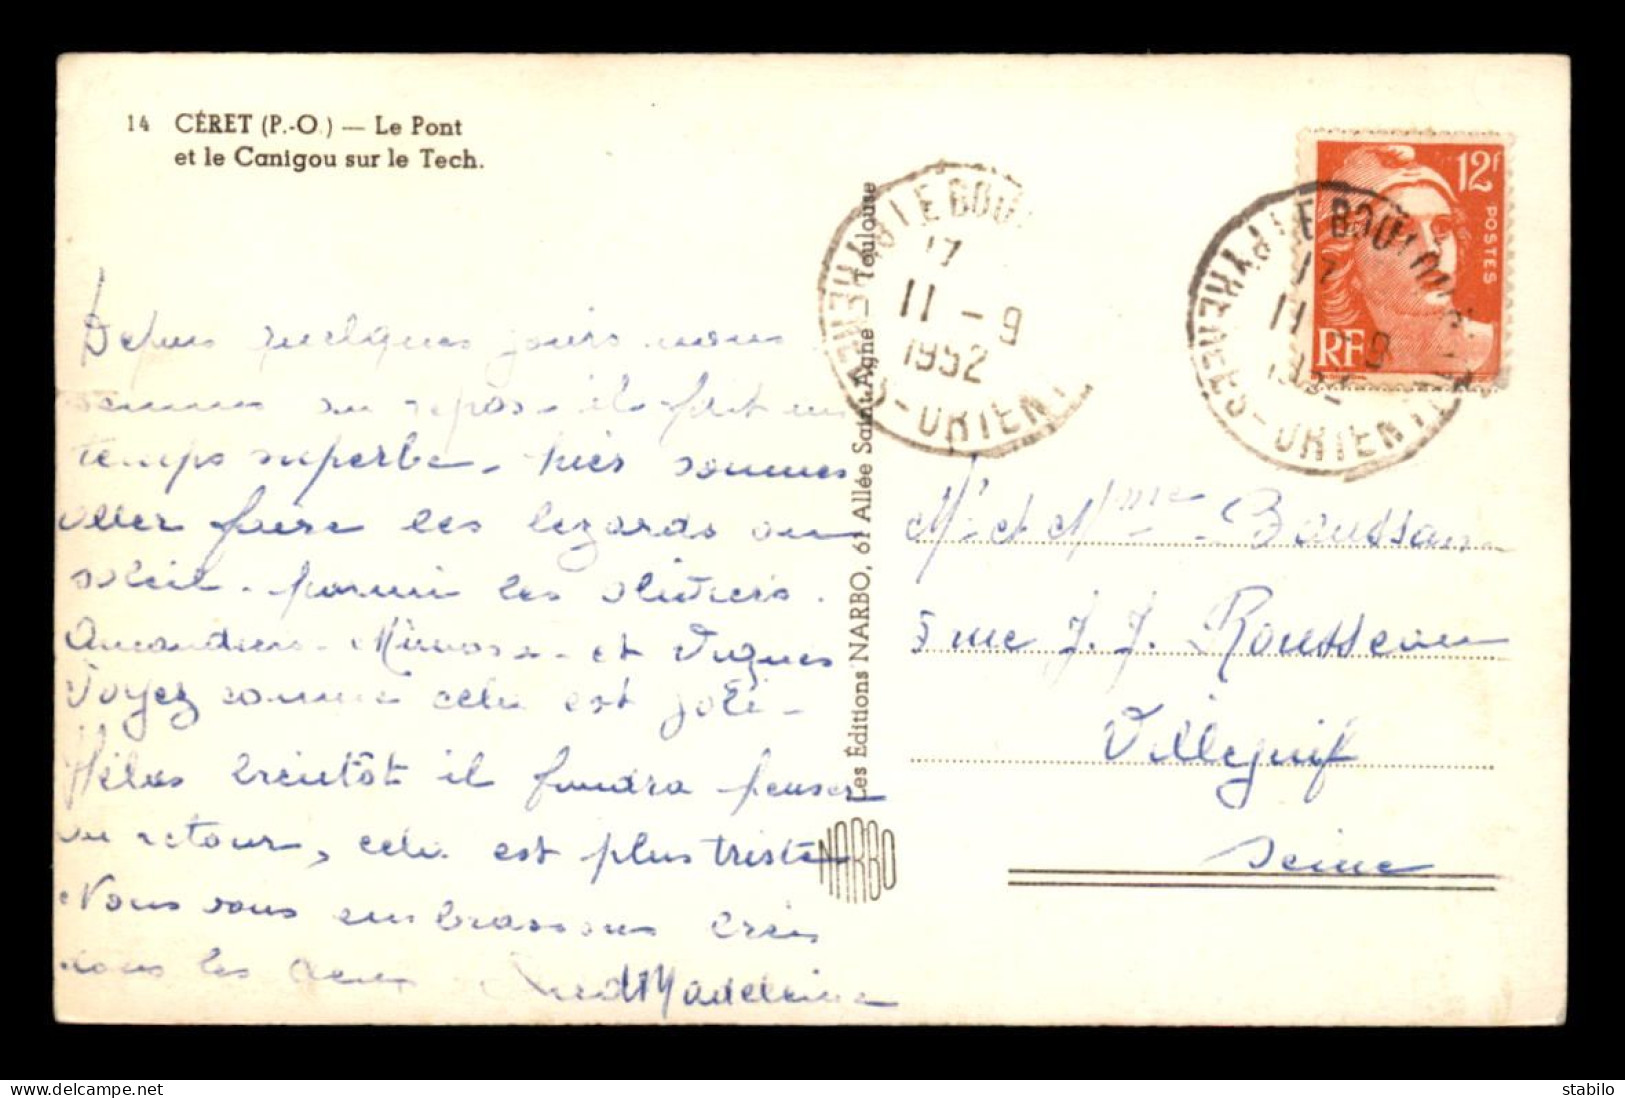 14 CÉRET (P.-O.) — Le Pont
et le Canigou sur le Tech.
Depuis quelques jours nous
sommes au repos. il fait un
temps superbe. hier sommes
aller faire les lezards au
soleil. parmi les oliviers.
Amandiers. Mimosa. et Vignes
Voyez comme cela est joli.
Hélas bientôt il faudra penser
au retour, cela est plus triste
Nous vous embrassons bien
tous les deux Madeleine
Les Éditions NARBO, 61 Allée Saint-Agne — Toulouse
NARBO
LE BOU
17
11 - 9
1952
PYRENEES-ORIENT
12f
POSTES
RF
LE BOULOU
17
11 - 9
1952
PYRENEES-ORIENT
Mr et Mme Boussan
5 rue J. J. Rousseau
Villejuif
Seine
stabilo
delcampe.net